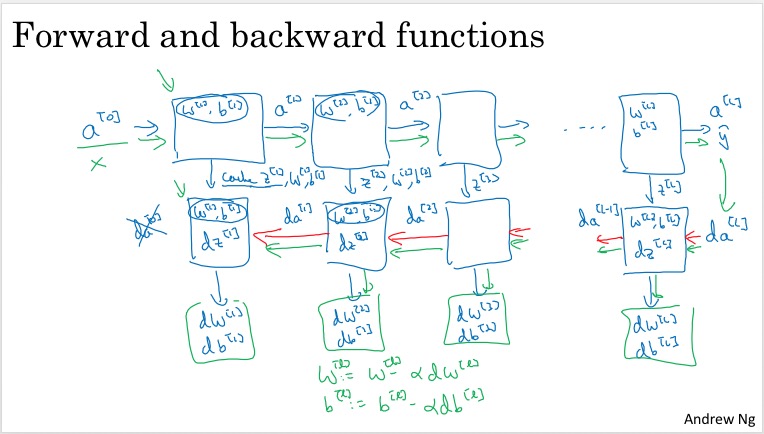 Forward and backward functions
a^[0] w^[1], b^[1] a^[1] w^[2], b^[2] a^[2] .... w^[L] b^[L] a^[L] ŷ
x
cache z^[1], w^[1], b^[1] z^[2], w^[2], b^[2] z^[3] z^[L]
da^[0] w^[1], b^[1] dz^[1] da^[1] w^[2], b^[2] dz^[2] da^[2] da^[L-1] w^[L], b^[L] dz^[L] da^[L]
dw^[1] dw^[2] dw^[3] dw^[L]
db^[1] db^[2] db^[3] db^[L]
w^[l] := w^[l] - αdw^[l]
b^[l] := b^[l] - αdb^[l]
Andrew Ng